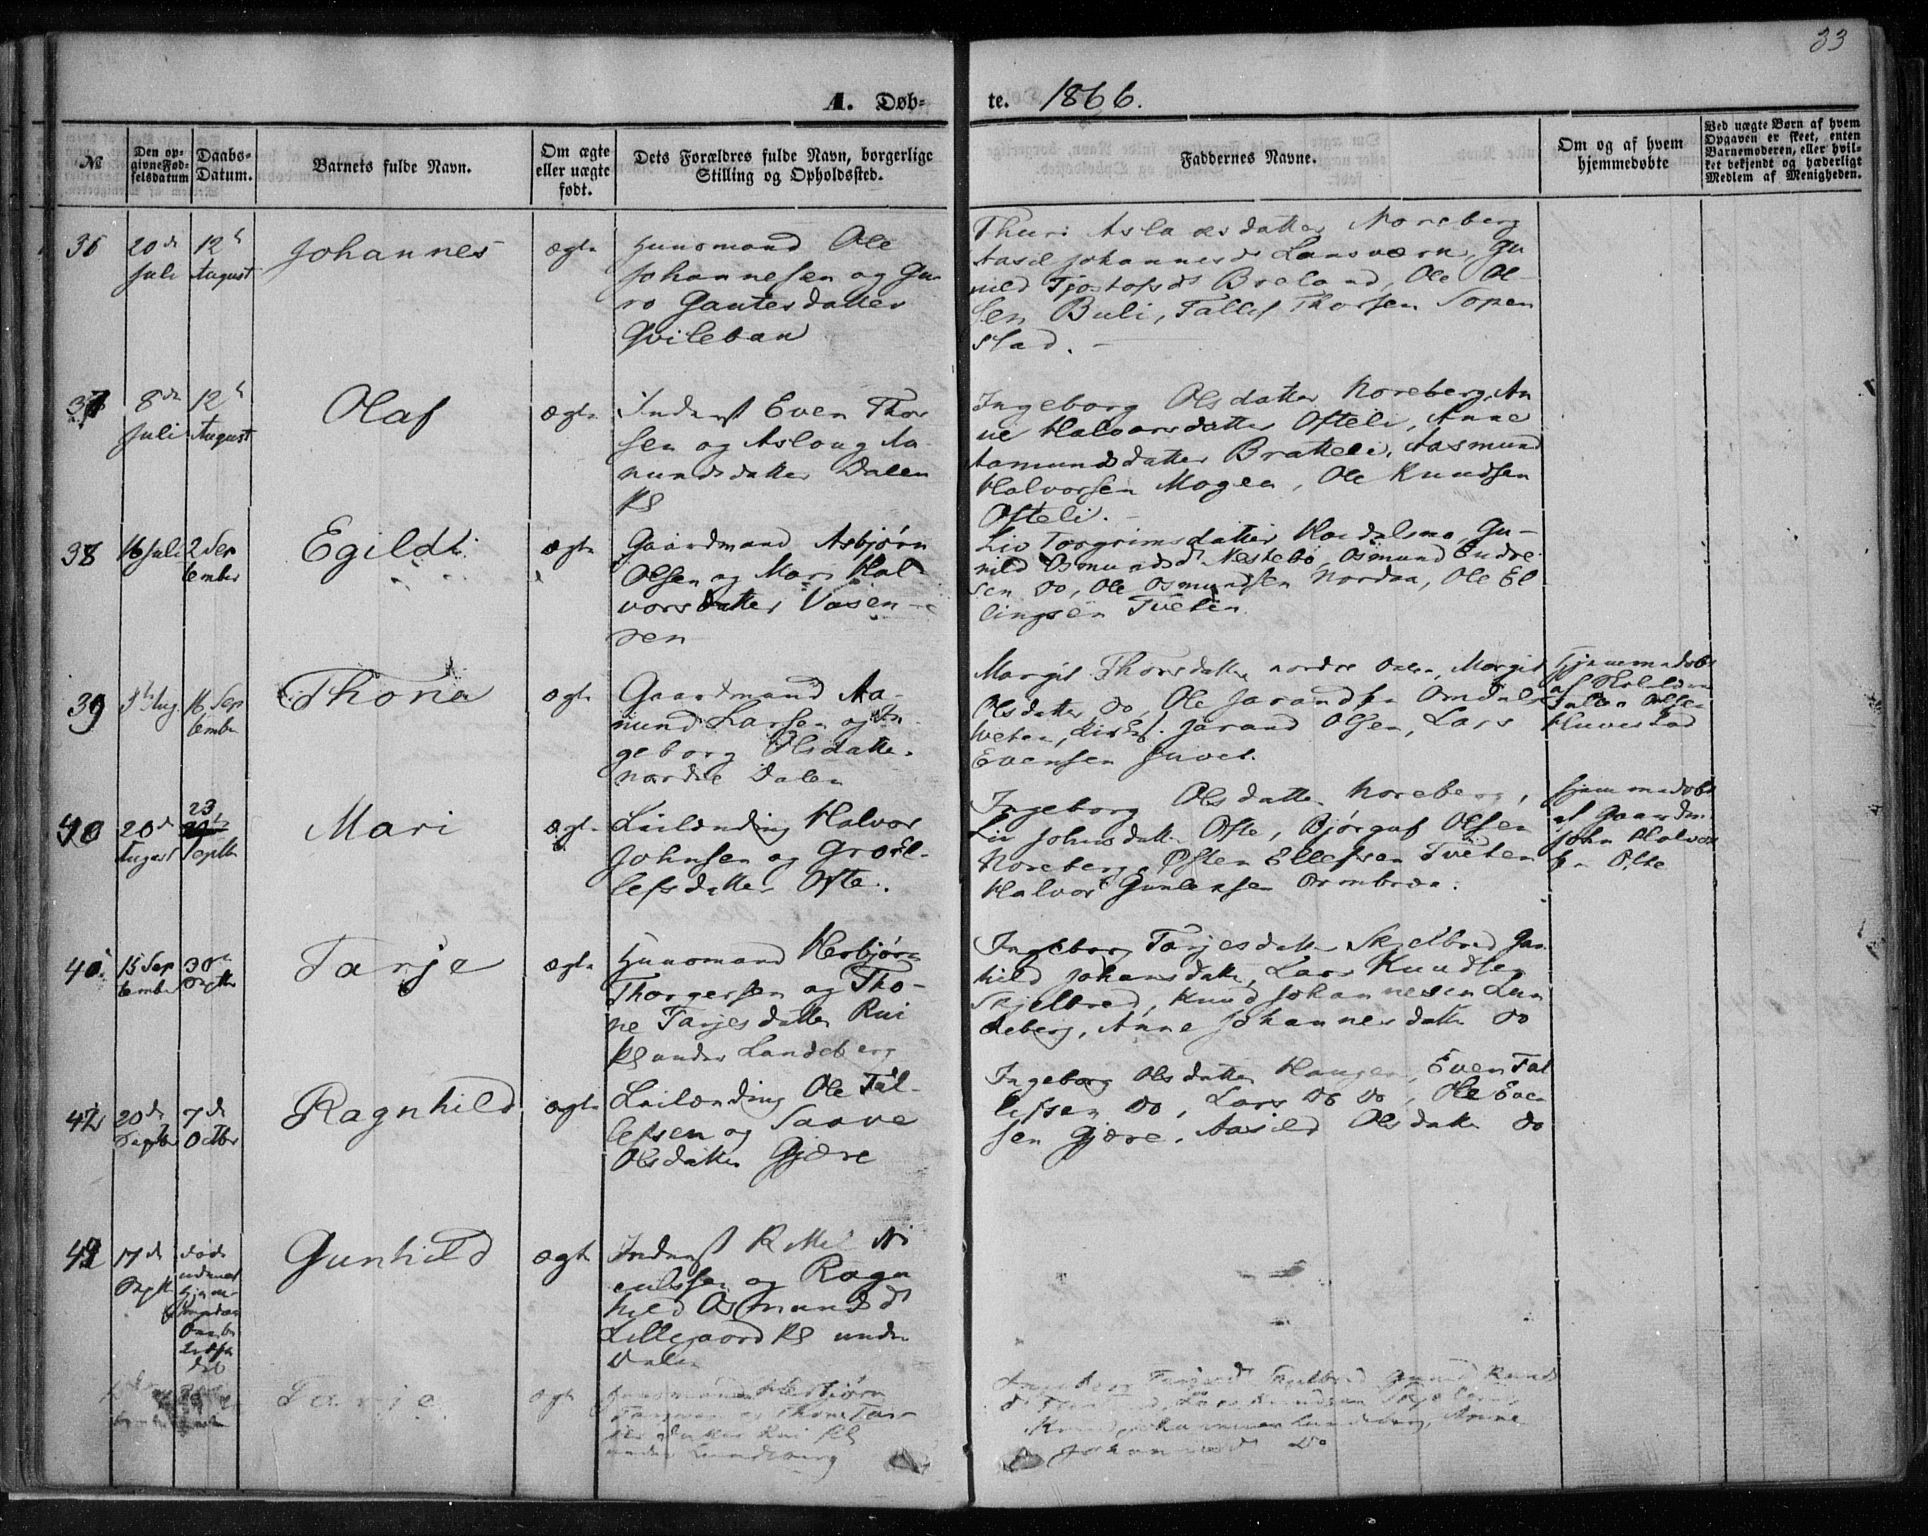 33
A. Døb-
te. 1866.
№
Den op-
givne Fød-
selsdatum
Daabs-
Datum.
Barnets fulde Navn.
Om ægte
eller uægte
født.
Dets Forældres fulde Navn, borgerlige
Stilling og Opholdssted.
Faddernes Navne.
Om og af hvem
hjemmedøbte
Ved uægte Børn af hvem
Opgaven er skeet, enten
Barnemoderen, eller hvil-
ket bekjendt og hæderligt
Medlem af Menigheden.
36
20de
Juli
12te
August
Johannes
ægte
Huusmand Ole
Johannesen og Gu-
ro Gautersdatter
Hvileban
Thuri Aslaksdatter Noreberg
Aasil Johannesd Lansværk, Gu
nild Tjostofsd Breland, Ole Ol-
sen Buli, Tallef Thorsen Sopen
stad.
37
8de
Juli
12te
August
Olaf
ægte
Inderst Even Thor
sen og Aslaug Aa-
nundsdatter Dalen
Pl
Ingeborg Olsdatter Noreberg, An
ne Halvorsdatter Ofteli, Anne
Aamundsdatter Bratteli, Aasmund
Halvorsen Mogen, Ole Knudsen
Ofteli.
38
16 Juli
2 Sep
tember
Egild
ægte
Gaardmand Asbjørn
Olsen og Mari Hal-
vorsdatter Vaasen-
Liv Torgrimsdatter Hordalsmo, Gu-
nild Osmundsd Nestebø, Osmund Endre-
sen do, Ole Osmundsen Nordaa, Ole El
lingsen Tveten
39
16 Sep
tember
Thone
ægte
Gaardmand Aa-
nund Larsen og In-
geborg Olsdatter
nordre Dalen
Margit Thorsdatter nordre Dalen, Margit
Olsdatter do, Ole Jarandsen Omdals
Jarand Olsen, Lars
Evensen Juvet.
Hjemmedøbt
Olsen
40
20de
August
23
Septbr
Mari
ægte
Leilænding Halvor
Johnsen og Gro El-
lefsdatter Ofte.
Ingeborg Olsdatter Noreberg,
Liv Johnsdatter Ofte, Bjørguf Olsen
Noreberg, Østen Ellefsen Tveten
Halvor Gunleksen Ormbræk.
Hjemmedøbt
af Gaardm.
John Halvor
sen Ofte
40.
15 Sep
tember
30te
Septbr
Tarje
ægte
Huusmand Herbjørn
Thorgersen og Tho-
ne Tarjesdatter Rui
Pl under Landeberg
Ingeborg Tarjesdatter Skjelbred Gun
hild Johansdatter, Lars Knudsen
Skjelbred, Knud Johannesen Lun
deberg, Anne Johannesdatter do
42
20de
Septbr
7de
Octbr
Ragnhild
ægte
Leilænding Ole Tal-
lefsen og Saave
Olsdatter Gjære
Ingeborg Olsdatter Haugen, Even Tal
lefsen do, Lars do do, Ole Even
sen Gjære, Aasild Olsdatter do
17de
Septbr
Gunhild
ægte
Inderst
og Ragn
hild Osmundsd
Lillegaard Pl under
Dalen
Tarje
ægte
Huusmand Herbjørn
og Thone Tar-
jesdatter Rui Pl
under Lundeberg
Ingeborg Tarjesd Skjelbred
Lars Knudsen
Johannesen Lundeberg, Anne
Johannesd do